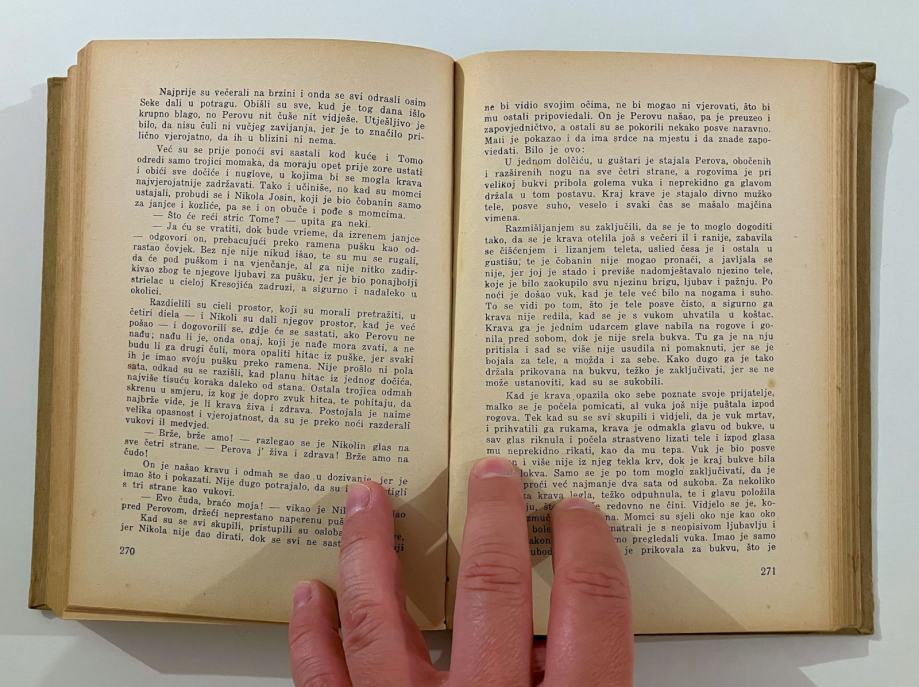 Najprije su večerali na brzini i onda se svi odrasli osim
Seke dali u potragu. Obišli su sve, kud je tog dana išlo
krupno blago, no Perovu nit čuše nit vidješe. Utješljivo je
bilo, da nisu čuli ni vučjeg zavijanja, jer je to značilo pri-
lično vjerojatno, da ih u blizini ni nema.
Već su se prije ponoći svi sastali kod kuće i Tomo
odredi samo trojici momaka, da moraju opet prije zore ustati
i obići sve dočiće i nuglove, u kojima bi se mogla krava
najvjerojatnije zadržavati. Tako i učiniše, no kad su momci
ustajali, probudi se i Nikola Josin, koji je bio čobanin samo
za janjce i kozliće, pa se i on obuče i pođe s momcima.
— Što će reći stric Tome? — upita ga neki.
— Ja ću se vratiti, dok bude vrieme, da izrenem janjce
— odgovori on, prebacujući preko ramena pušku kao od-
rastao čovjek. Bez nje nije nikud išao, te su mu se rugali,
da će pod puškom i na vjenčanje, al ga nije nitko zadir-
kivao zbog te njegove ljubavi za pušku, jer je bio ponajbolji
strielac u cieloj Kresojića zadruzi, a sigurno i nadaleko u
okolici.
Razdielili su cieli prostor, koji su morali pretražiti, u
četiri diela — i Nikoli su dali njegov prostor, kad je već
pošao — i dogovorili se, gdje će se sastati, ako Perovu ne
nađu; nađu li je, onda onaj, koji je nađe mora zvati, a ne
budu li ga drugi čuli, mora opaliti hitac iz puške, jer svaki
ih je imao svoju pušku preko ramena. Nije prošlo ni pola
sata, odkad su se razišli, kad planu hitac iz jednog dočića,
najviše tisuću koraka daleko od stana. Ostala trojica odmah
skrenu u smjeru, iz kog je dopro zvuk hitca, te pohitaju, da
najbrže vide, je li krava živa i zdrava. Postojala je naime
velika opasnost i vjerojatnost, da su je preko noći razderali
vukovi il medvjed.
— Brže, brže amo! — razlegao se je Nikolin glas na
sve četri strane. — Perova j' živa i zdrava! Brže amo na
čudo!
On je našao kravu i odmah se dao u dozivanje, jer je
imao što i pokazati. Nije dugo potrajalo, da su
s tri strane kao vukovi.
— Evo čuda, braćo moja! — vikao je
pred Perovom, držeći neprestano naperenu
Kad su se svi skupili, pristupili su
jer Nikola nije dao dirati, dok se svi ne
270
ne bi vidio svojim očima, ne bi mogao ni vjerovati, što bi
mu ostali pripoviedali. On je Perovu našao, pa je preuzeo i
zapovjedničtvo, a ostali su se pokorili nekako posve naravno.
Mali je pokazao i da ima srdce na mjestu i da znade zapo-
viedati. Bilo je ovo:
U jednom dolčiću, u guštari je stajala Perova, obočenih
i razširenih nogu na sve četri strane, a rogovima je pri
velikoj bukvi pribola golema vuka i neprekidno ga glavom
držala u tom postavu. Kraj krave je stajalo divno mužko
tele, posve suho, veselo i svaki čas se mašalo majčina
vimena.
Razmišljanjem su zaključili, da se je to moglo dogoditi
tako, da se je krava otelila još s večeri il i ranije, zabavila
se čišćenjem i lizanjem teleta, uslied česa je i ostala u
gustišu, te je čobanin nije mogao pronaći, a javljala se
nije, jer joj je stado i previše nadomještavalo njezino tele,
koje je bilo zaokupilo svu njezinu brigu, ljubav i pažnju. Po
noći je došao vuk, kad je tele već bilo na nogama i suho.
To se vidi po tom, što je tele posve čisto, a sigurno ga
krava nije redila, kad se je s vukom uhvatila u koštac.
Krava ga je jednim udarcem glave nabila na rogove i go-
nila pred sobom, dok je nije srela bukva. Tu ga je na nju
pritisla i sad se više nije usudila ni pomaknuti, jer se je
bojala za tele, a možda i za sebe. Kako dugo ga je tako
držala prikovana na bukvu, težko je zaključivati, jer se ne
može ustanoviti, kad su se sukobili.
Kad je krava opazila oko sebe poznate svoje prijatelje,
malko se je počela pomicati, al vuka još nije puštala izpod
rogova. Tek kad su se svi skupili i vidjeli, da je vuk mrtav,
i prihvatili ga rukama, krava je odmakla glavu od bukve, u
sav glas riknula i počela strastveno lizati tele i izpod glasa
mu neprekidno rikati, kao da mu tepa. Vuk je bio posve
i više nije iz njeg tekla krv, dok je kraj bukve bila
lokva. Samo se je po tom moglo zaključivati, da je
proći već najmanje dva sata od sukoba. Za nekoliko
krava legla, težko odpuhnula, te i glavu položila
redovno ne čini. Vidjelo se je, ko-
Momci su sjeli oko nje kao oko
je s neopisivom ljubavlju i
pregledali vuka. Imao je samo
je prikovala za bukvu, što je
271